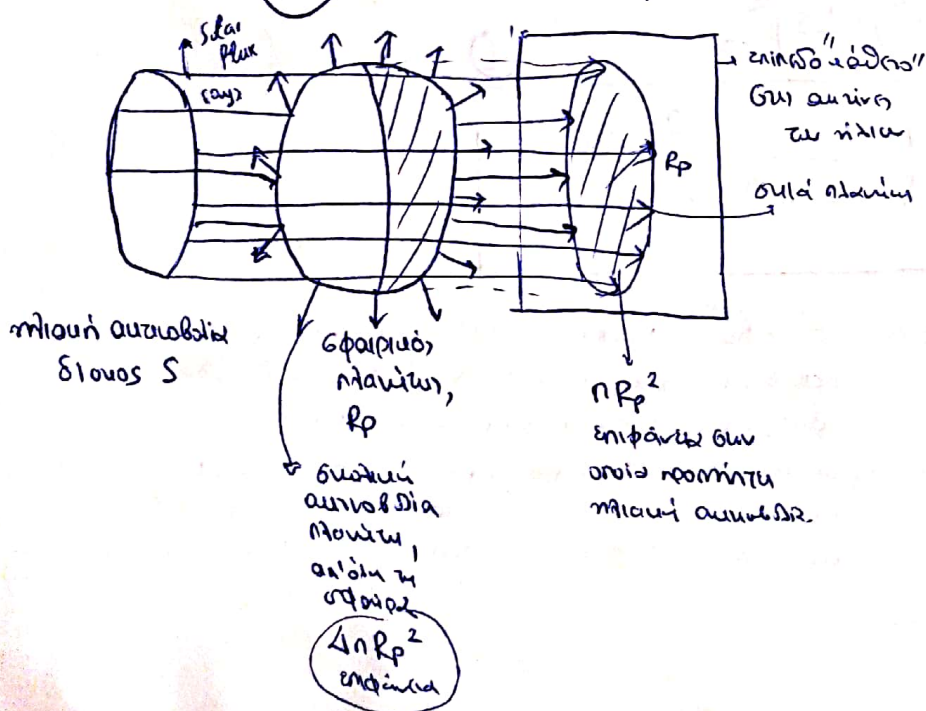 Star
flux
rays
επίπεδο "κάθετο"
στις ακτίνες
του ήλιου
Rp
σκιά πλανήτη
ηλιακή ακτινοβολία
δίσκος S
σφαιρικός
πλανήτης,
Rp
πRp²
επιφάνεια στην
οποία προσπίπτει
ηλιακή ακτινοβολία.
ακτινοβολία
πλανήτη,
απ' όλη τη
σφαίρα
4πRp²
επιφάνεια